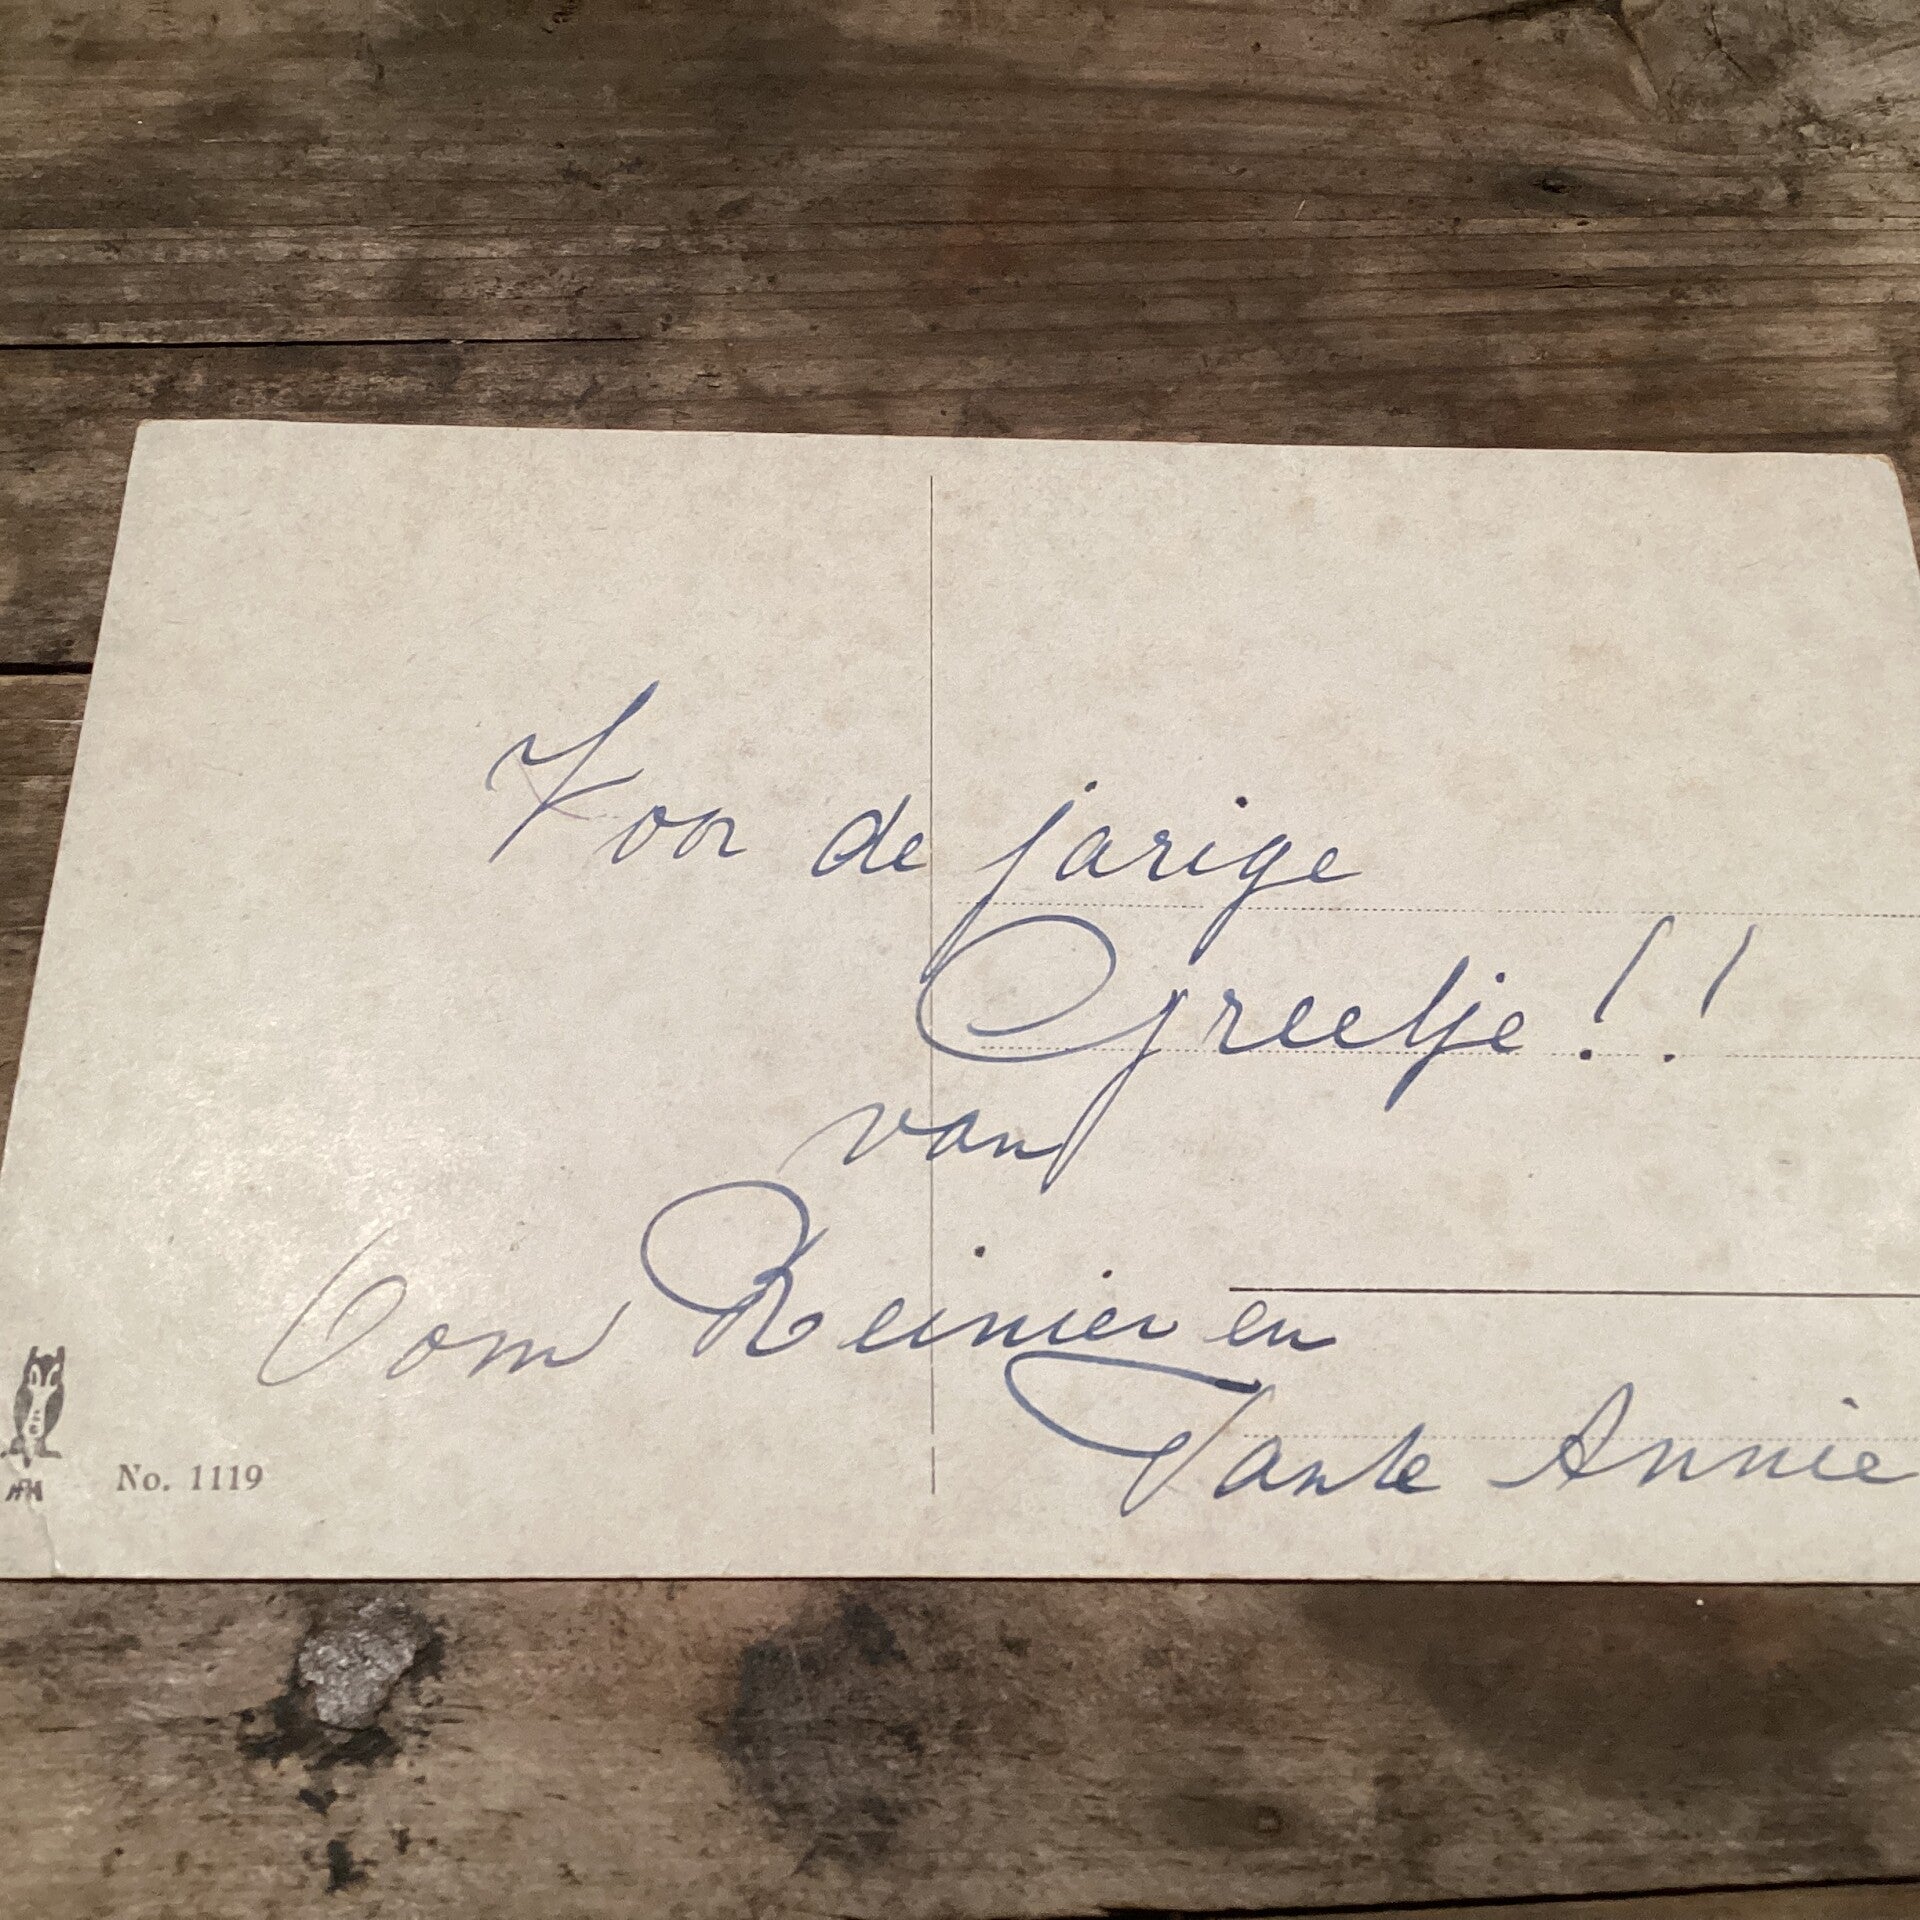 Voor de jarige
Greetje!!
van
Oom Reinier en
Tante Annie
No. 1119